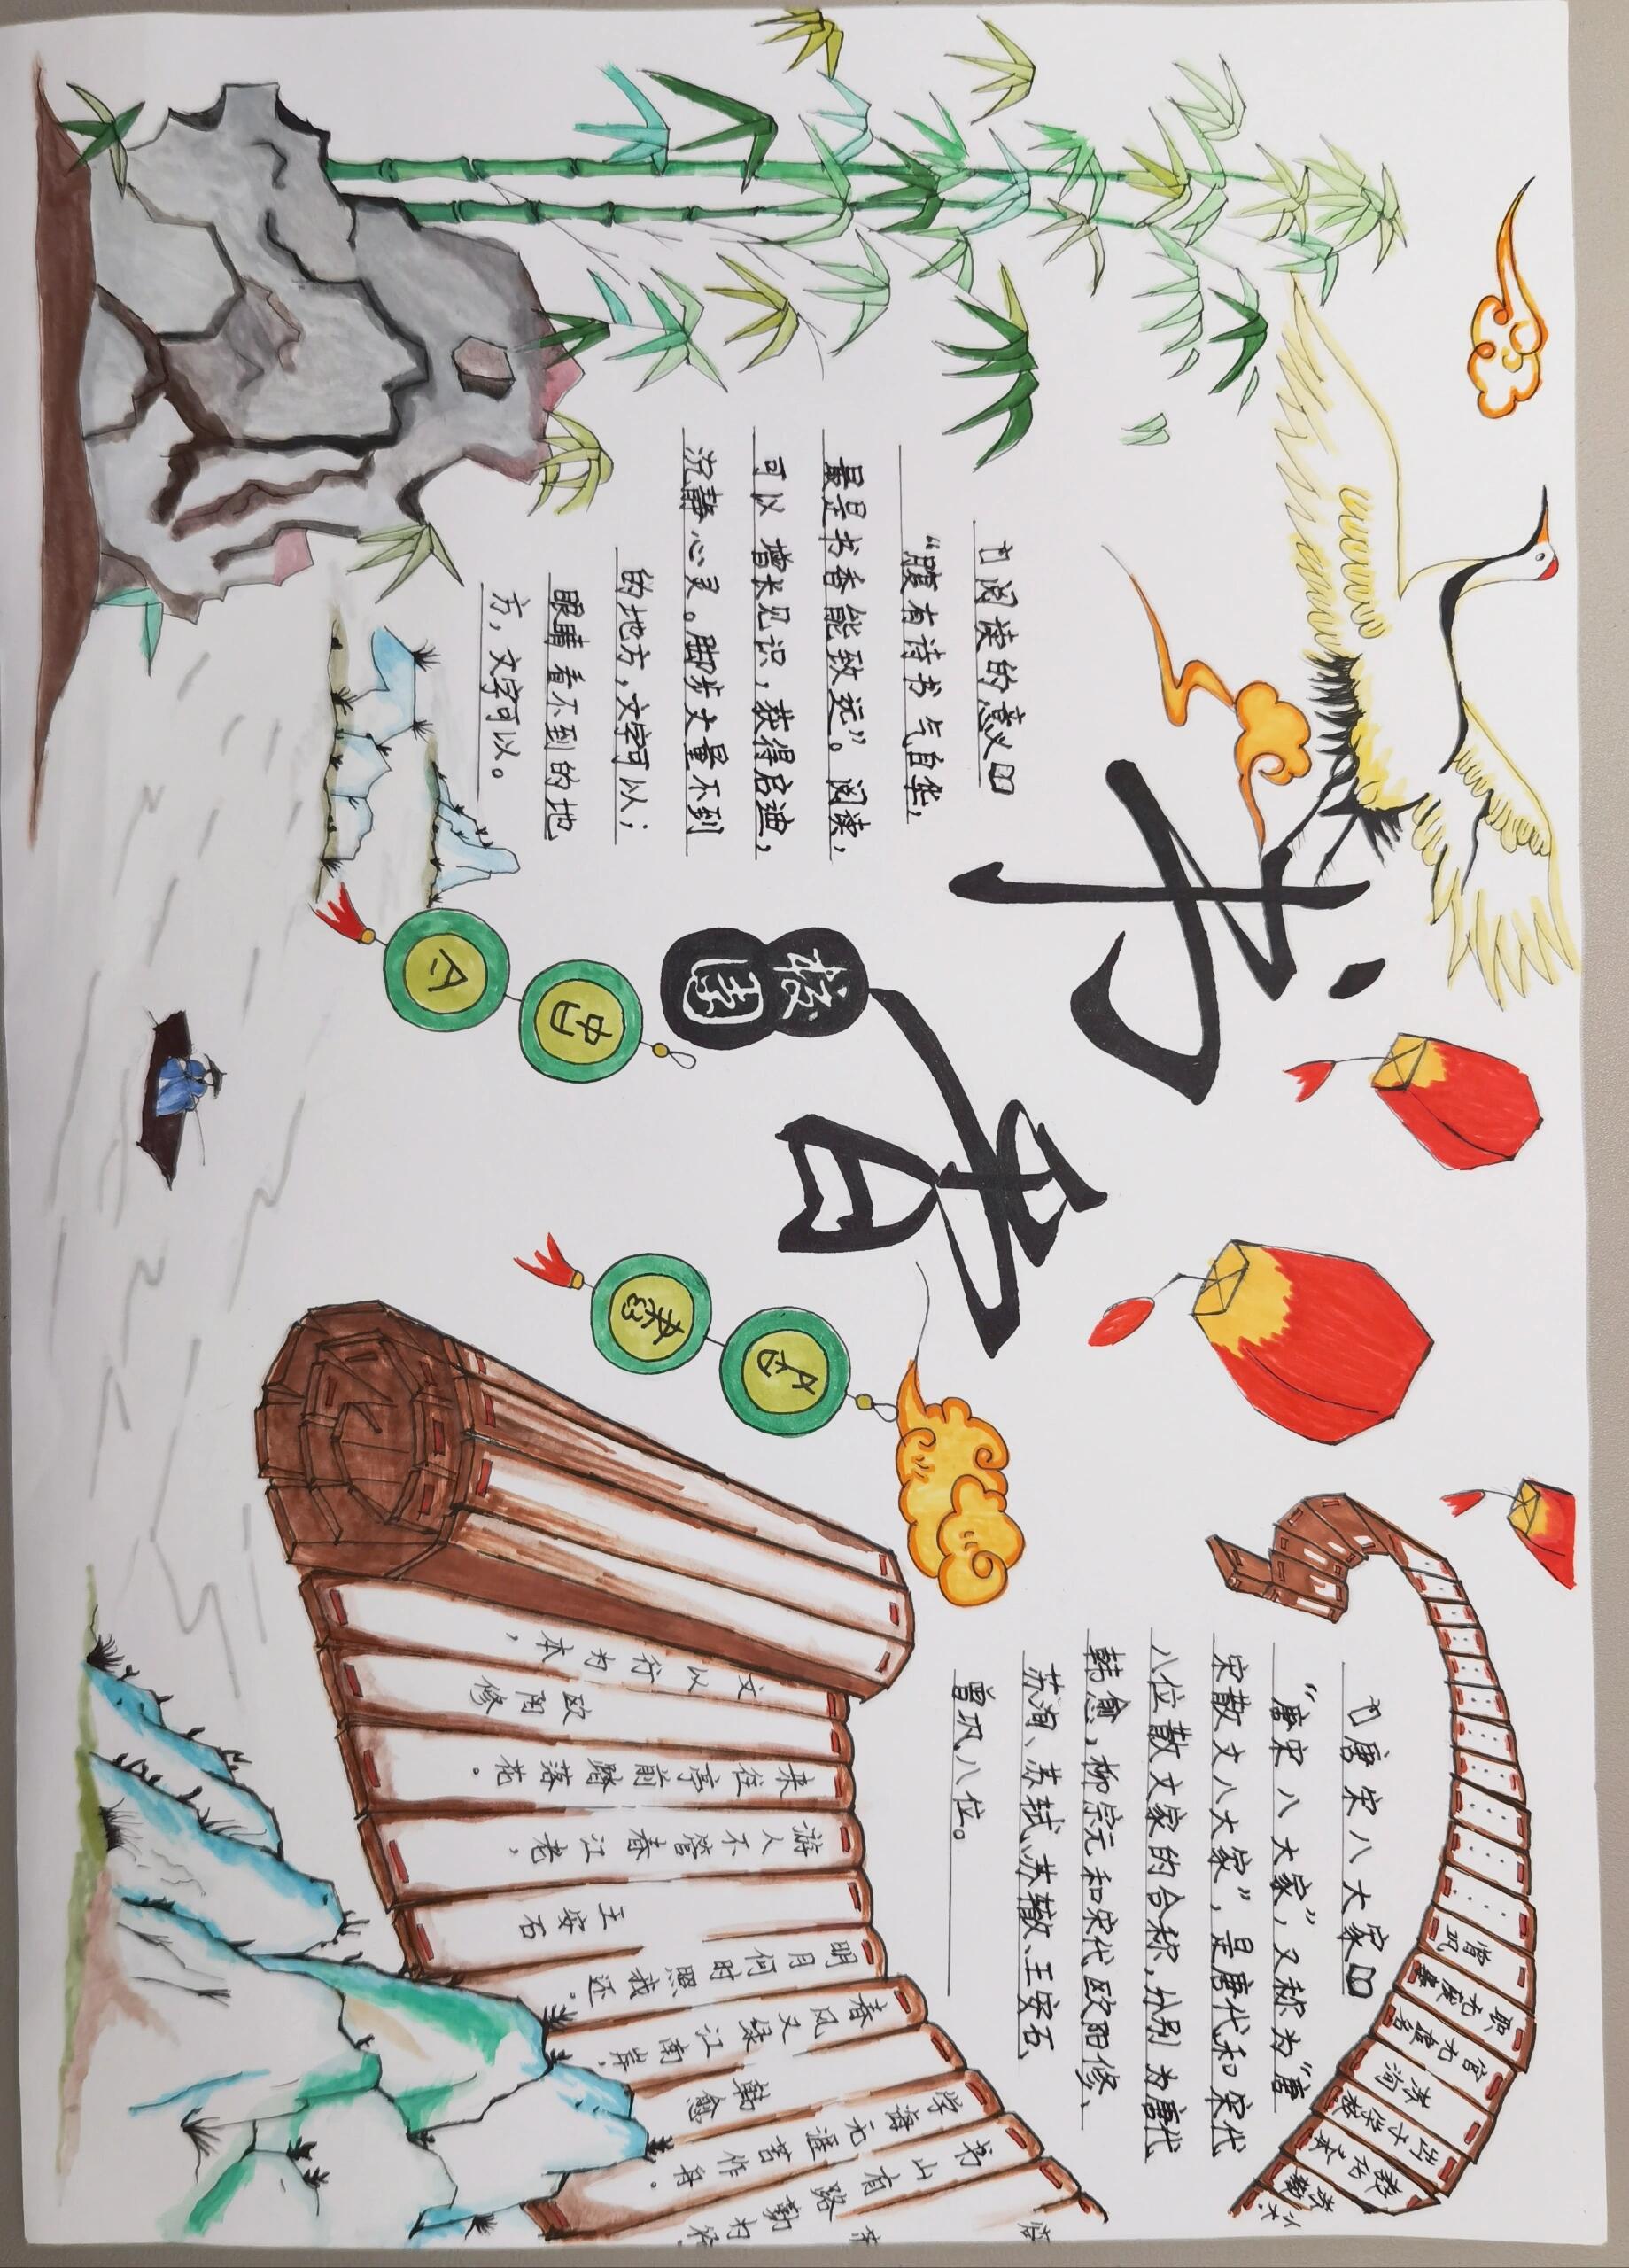 书香
校园
阅读的意义
“腹有诗书气自华,
最是书香能致远”。阅读,
可以增长见识,获得启迪,
沉静心灵。脚步丈量不到
的地方,文字可以;
眼睛看不到的地
方,文字可以。
唐宋八大家
“唐宋八大家”,又称为“唐
宋散文八大家”,是唐代和宋代
八位散文家的合称,分别为唐代
韩愈,柳宗元和宋代欧阳修、
苏洵、苏轼、苏辙、王安石、
曾巩八位。
苏洵
曾巩
书山有路勤为径
学海无涯苦作舟。
韩愈
春风又绿江南岸,
明月何时照我还。
王安石
游人不管春江老,
来往亭前踏落花。
欧阳修
文以行为本,